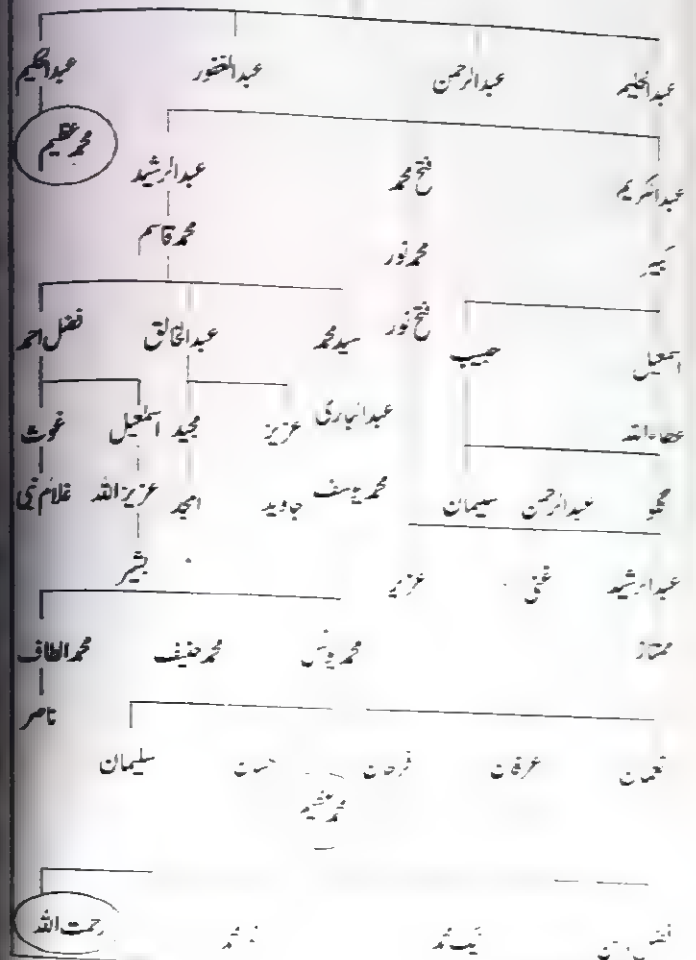 عبدالحلیم عبدالرحمن عبدالغفور عبدالحکیم
محمد عظیم
عبدالکریم فتح محمد عبدالرشید
کبیر محمد نور محمد قاسم
فتح نور
اسمٰعیل حبیب سید محمد عبدالخالق فضل احمد
عطاءاللہ عبدالباری عزیز مجید اسمٰعیل غوث
عبدالرحمن سلیمان محمد یوسف جاوید امجد عزیز اللہ غلام نبی
بشیر
عبدالرشید غنی عزیز
ممتاز محمد یونس محمد حنیف محمد الطاف
ناصر
نعمان عرفان فرحان سلیمان
محمد عظیم
نیک محمد رحمت اللہ